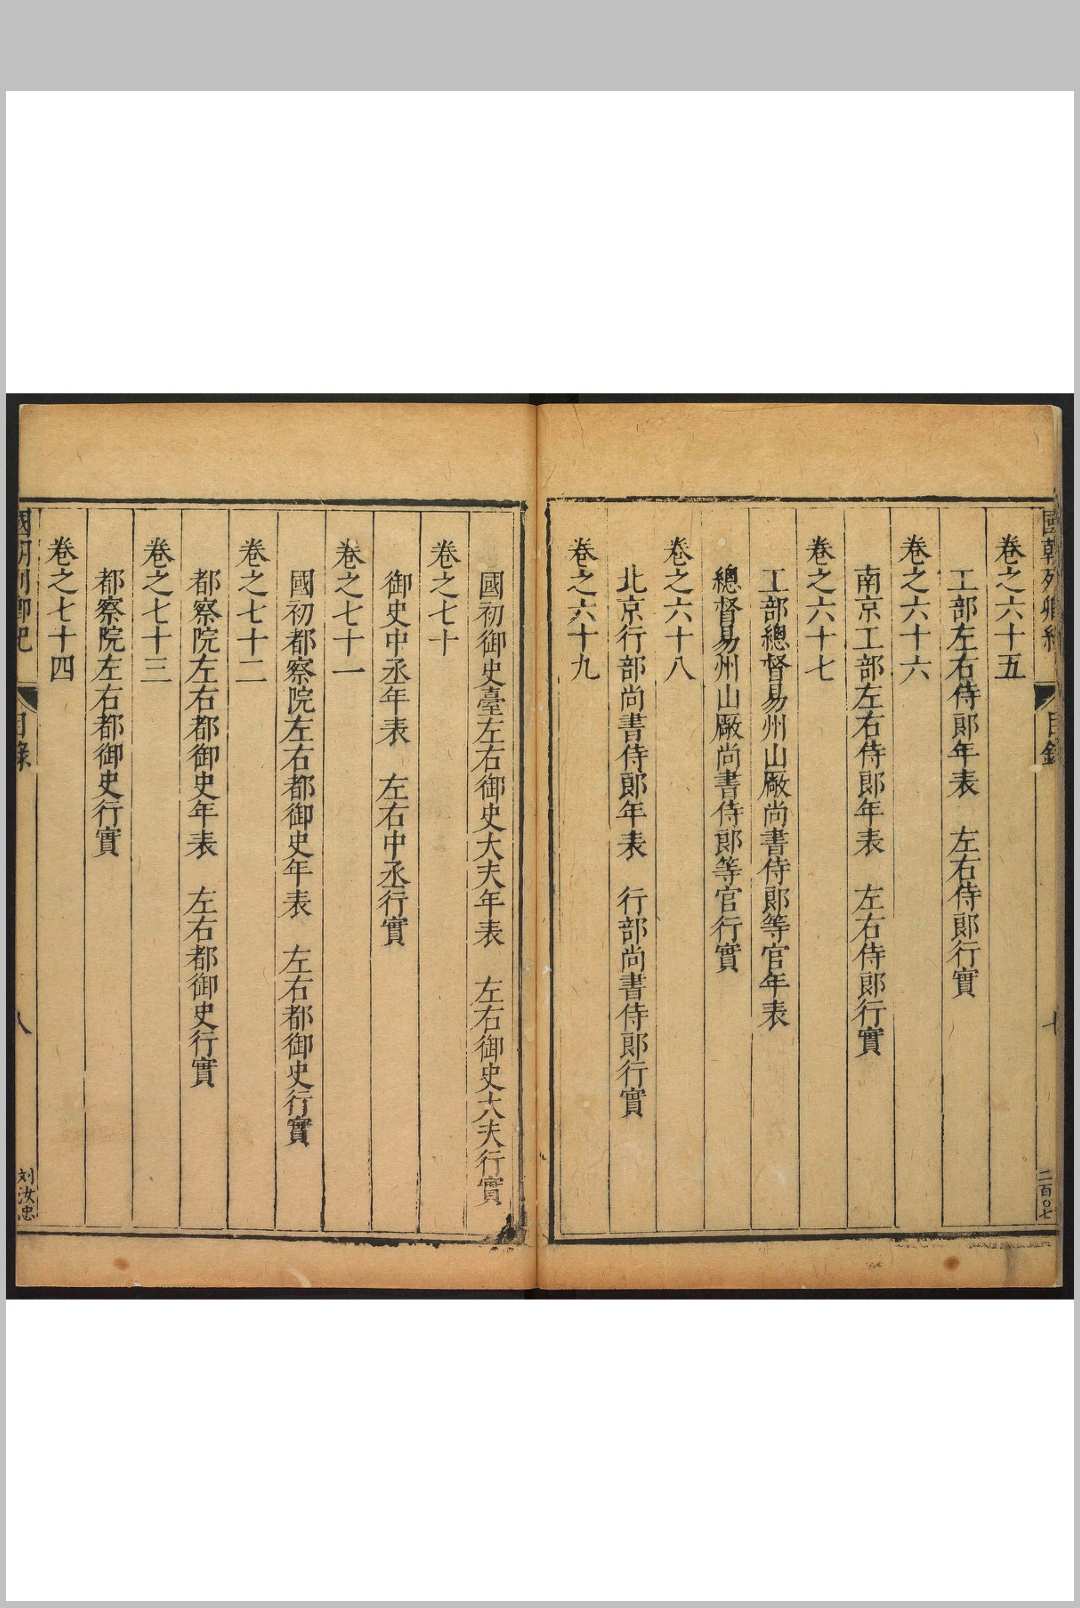 卷之六十五
工部左右侍郎年表　左右侍郎行實
卷之六十六
南京工部左右侍郎年表　左右侍郎行實
卷之六十七
工部總督易州山廠尚書侍郎等官年表
總督易州山廠尚書侍郎等官行實
卷之六十八
北京行部尚書侍郎年表　行部尚書侍郎行實
卷之六十九
國初御史臺左右御史大夫年表　左右御史大夫行實
卷之七十
御史中丞年表　左右中丞行實
卷之七十一
國初都察院左右都御史年表　左右都御史行實
卷之七十二
都察院左右都御史年表　左右都御史行實
卷之七十三
都察院左右都御史行實
卷之七十四
國朝列卿紀
目錄
八
刘汝忠
二百〇七